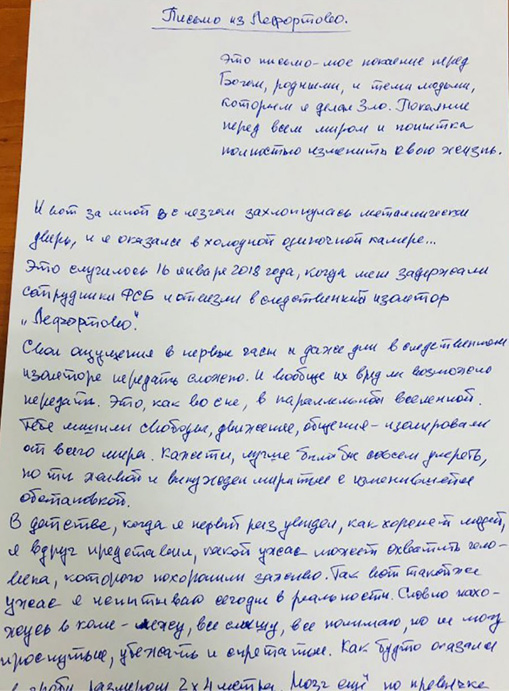 Письмо из Лефортово.
Это письмо-мое покаяние перед
Богом, родными, и теми людьми,
которым я делал Зло. Покаяние
перед всем миром и попытка
полностью изменить свою жизнь.
И вот за мной с лязгом захлопнулась металлическая
дверь, и я оказался в холодной одиночной камере...
Это случилось 16 января 2018 года, когда меня задержали
сотрудники ФСБ и отвезли в следственный изолятор
„Лефортово".
Свои ощущения в первые часы и даже дни в следственном
изоляторе передать сложно. И вообще их вряд ли возможно
передать. Это, как во сне, в параллельной вселенной.
Тебя лишили свободы, движения, общения-изолировали
от всего мира. Кажется, лучше было бы совсем умереть,
но ты живой и вынужден мириться с изменившейся
обстановкой.
В детстве, когда я первый раз увидел, как хоронят людей,
я вдруг представил, какой ужас может охватить чело-
века, которого похоронили заживо. Так вот такой же
ужас я испытываю сегодня в реальности. Словно нахо-
жусь в коме-лежу, все слышу, все понимаю, но не могу
проснуться, убежать и спрятаться. Как будто оказался
в гробу размером 2х4 метра. Мозг ещё по привычке